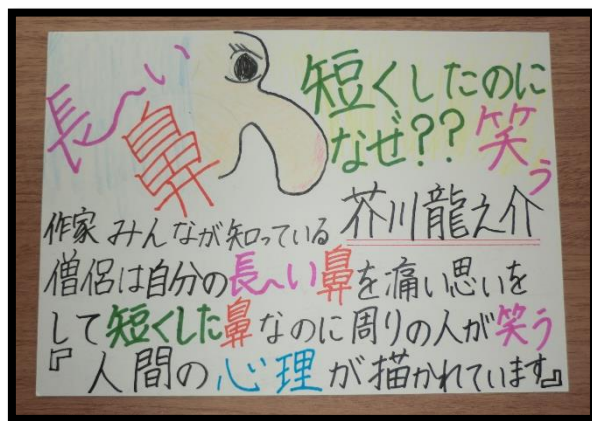 長〜い
鼻
短くしたのに
なぜ??笑う
作家 みんなが知っている 芥川龍之介
僧侶は自分の長〜い鼻を痛い思いを
して短くした鼻なのに周りの人が笑う
『人間の心理が描かれています』